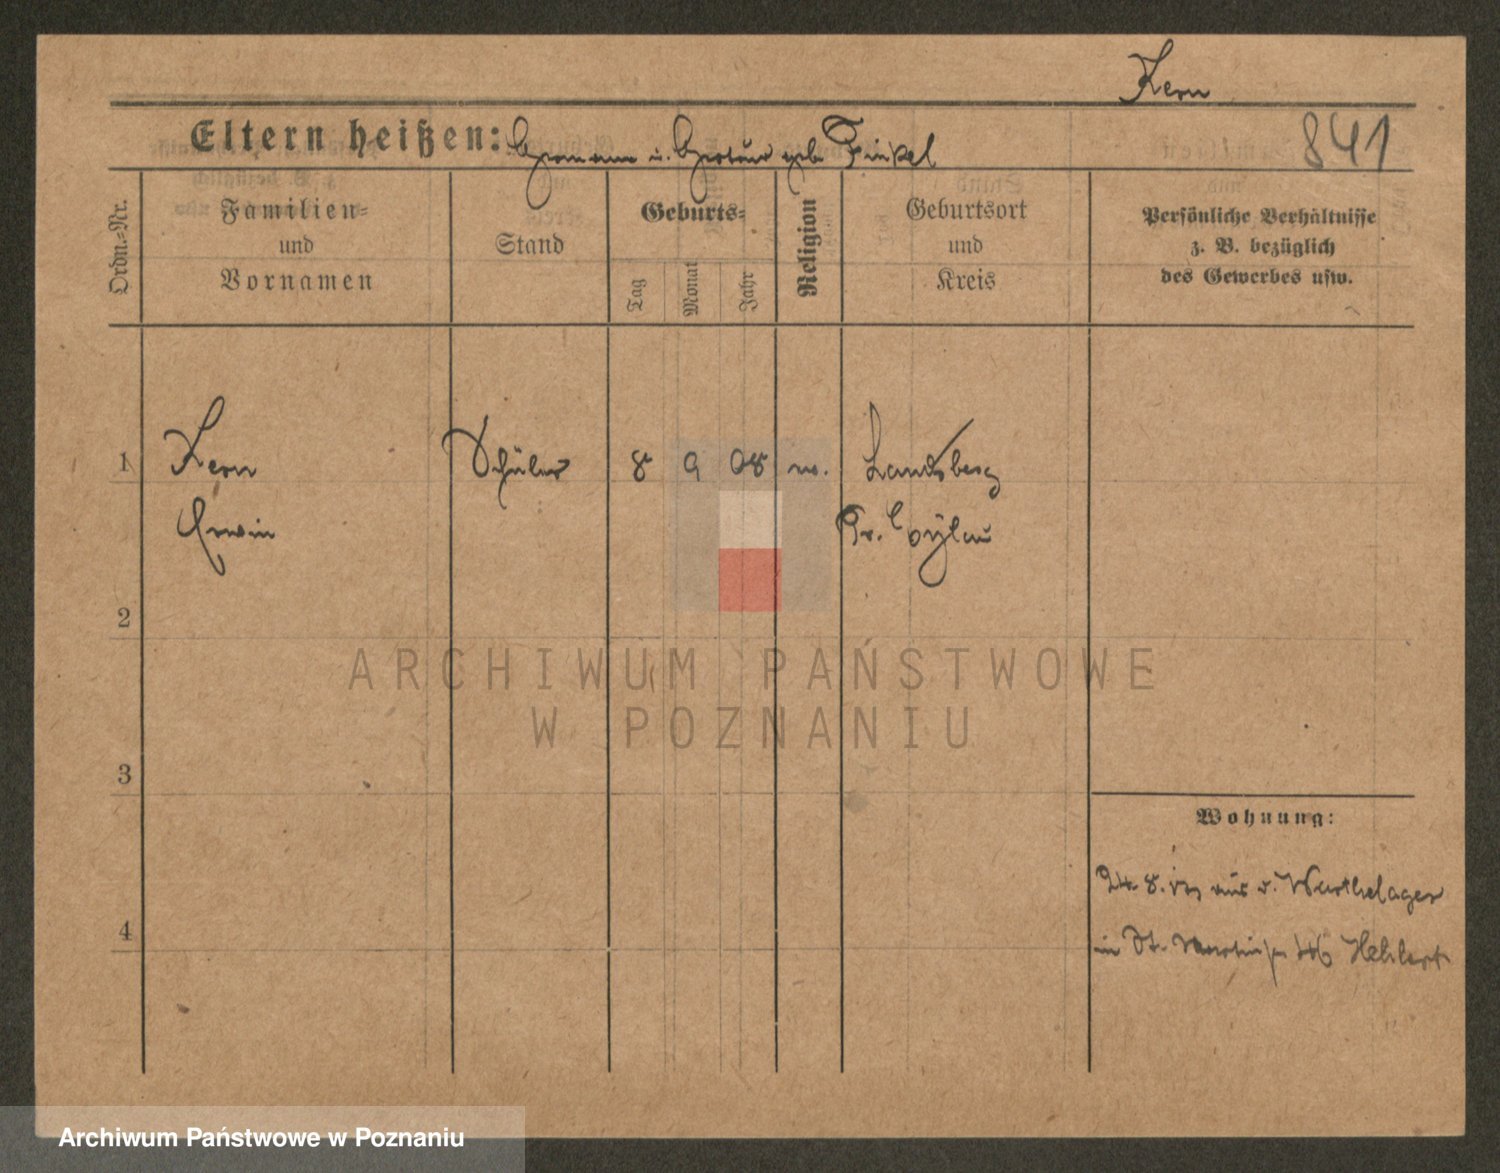 Kern
841
Eltern heißen: Hermann u. Gertrud geb. Finkel
Ordn.=Nr.
Familien=
und
Vornamen
Stand
Geburts=
Tag
Monat
Jahr
Religion
Geburtsort
und
Kreis
Persönliche Verhältnisse
z. B. bezüglich
des Gewerbes usw.
1
Kern
Schüler
8
9
08
Landsberg
Erwin
Pr. Eylau
2
ARCHIWUM PAŃSTWOWE
W POZNANIU
3
Wohnung:
24. 8. aus d. Warthelager
4
in St. Martinstr 46
Archiwum Państwowe w Poznaniu